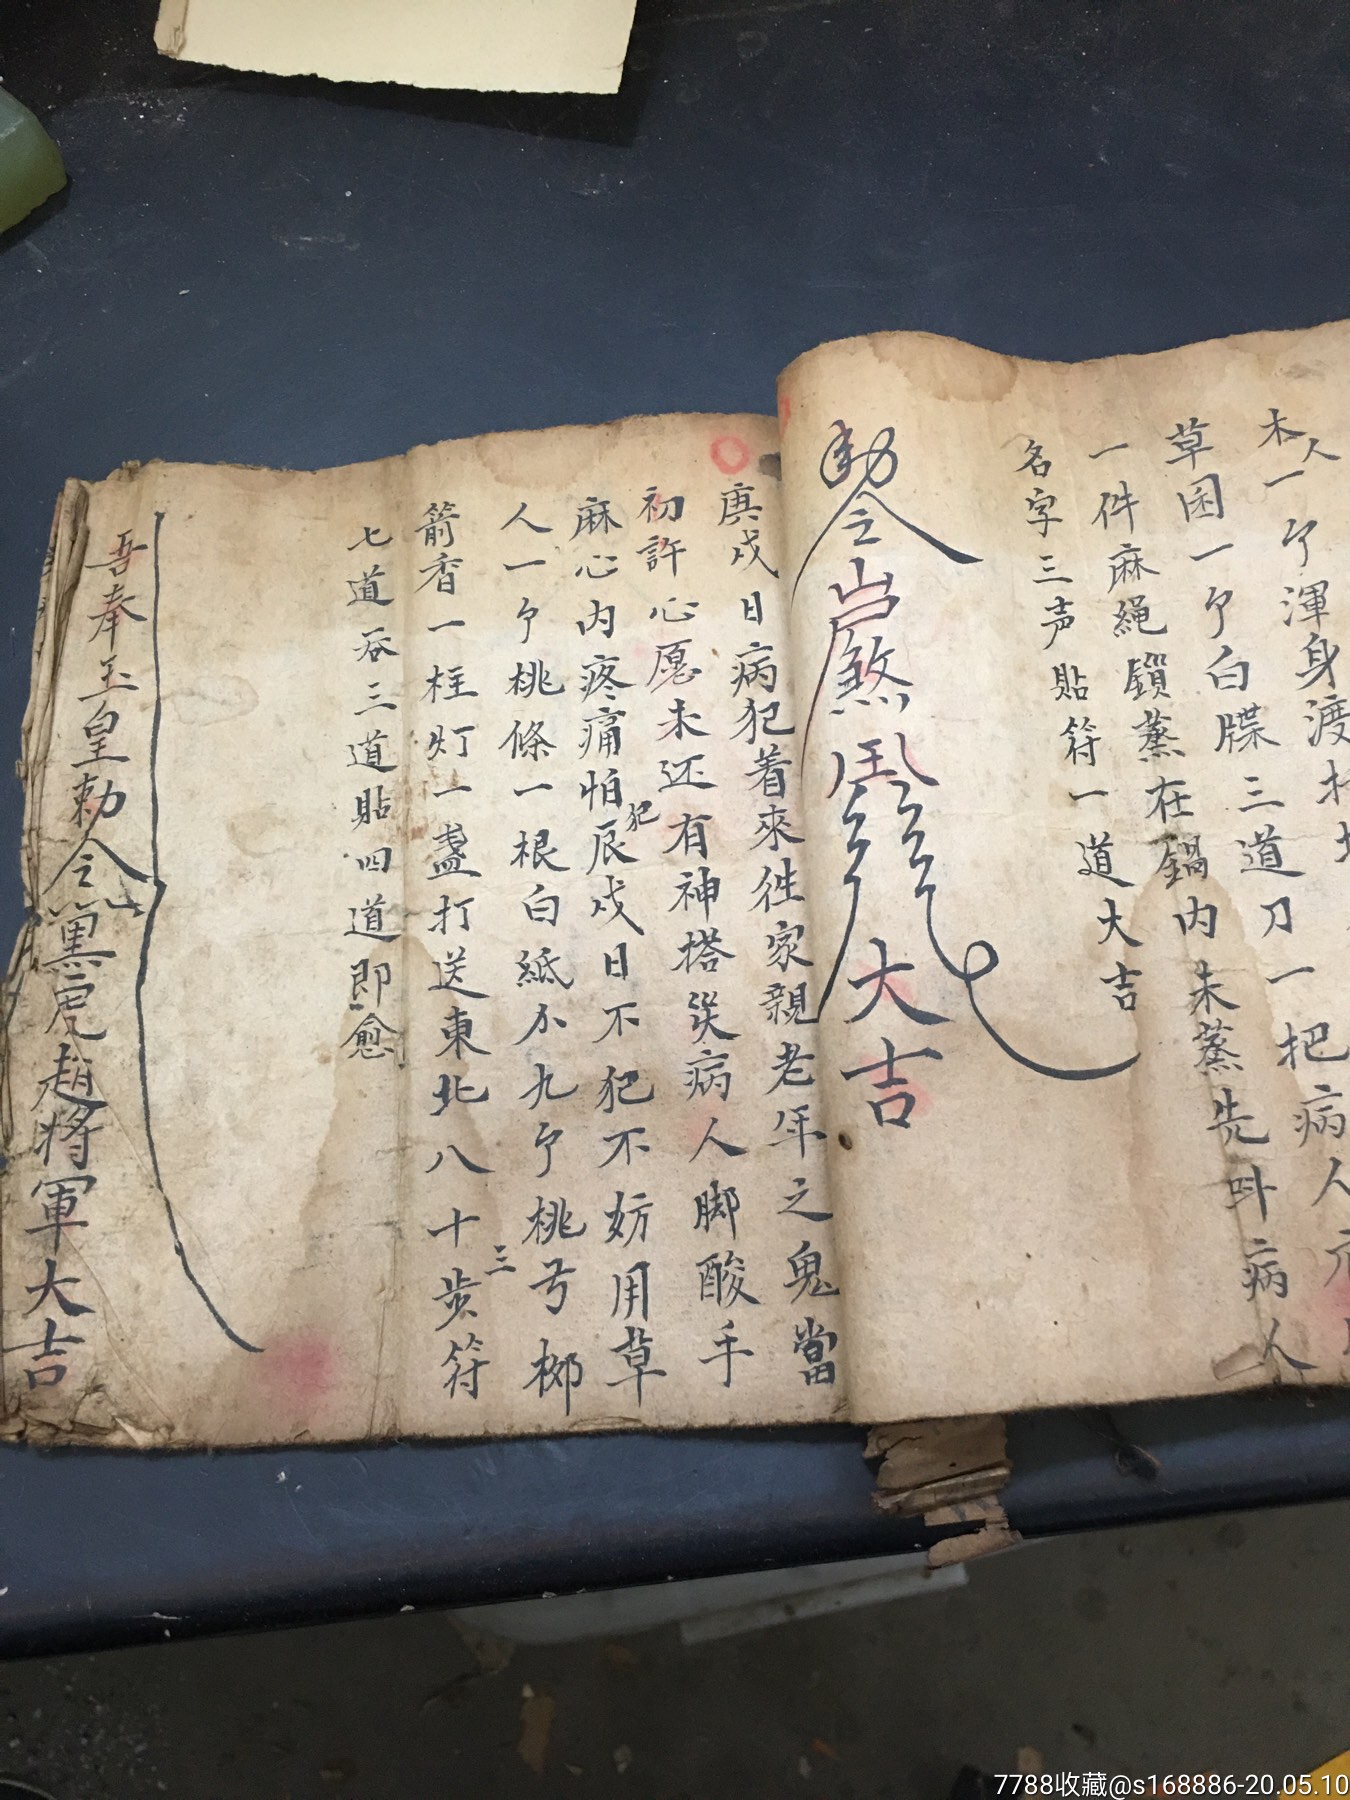 木人一个渾身渡
草囤一个白牒三道刀一把病人
一件麻繩鎖蒸在鍋内未蒸先呌病人
名字三声貼符一道大吉
勅令煞大吉
庚戌日病犯着來徃家親老年之鬼當
初許心愿未还有神搭災病人脚酸手
麻心内疼痛怕犯辰戌日不犯不妨用草
人一个桃條一根白紙小九个桃弓柳
箭香一柱灯一盞打送東北八十三步符
七道吞三道貼四道即愈
吾奉玉皇勅令黑虎趙將軍大吉
7788收藏@s168886-20.05.10